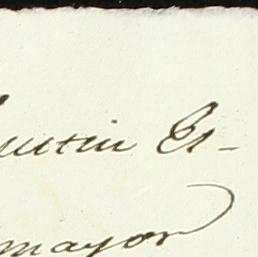 ustin Es-
mayor